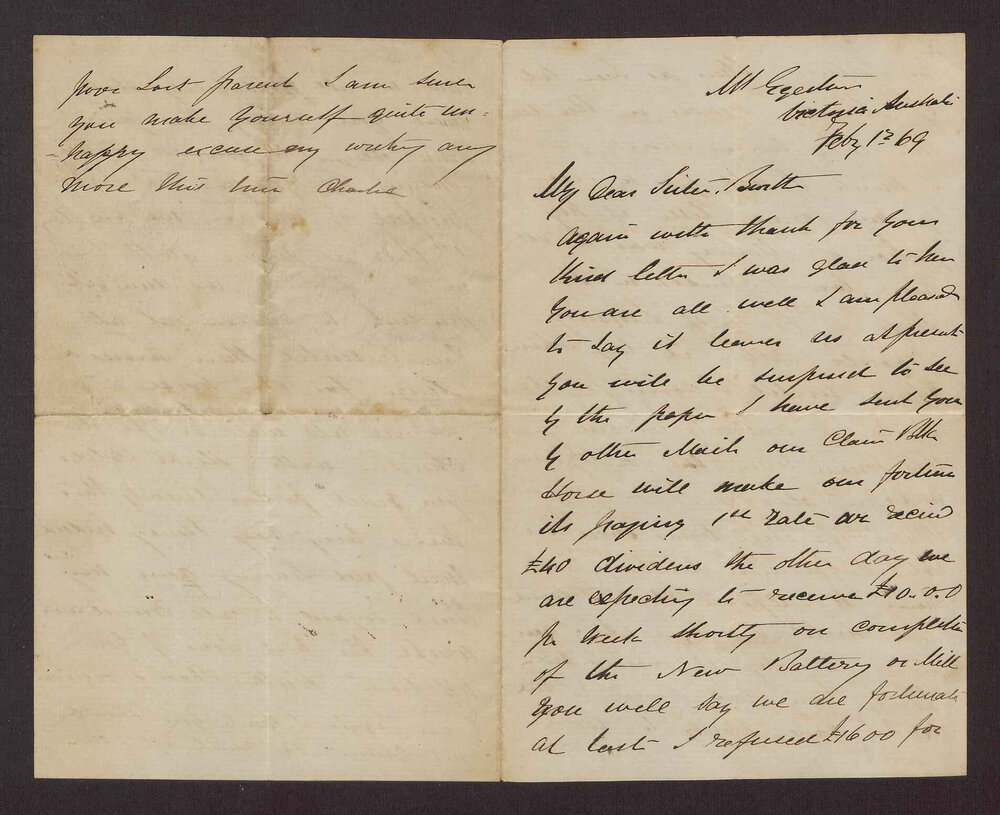 poor Lost parent I am sure
you make yourself quite un-
-happy excuse my writing any
more this time Charlie
Mt Egerton
Victoria Australi
Feby 1st 69
My Dear Sister
again with thank for your
Kind letter I was glad to hear
you are all well I am pleased
to say it leaves us at present
you will be surprised to see
by the paper I have sent you
by other Mail our Claim Blk
Horse will make our fortune
its paying 1st rate we recievd
£40 dividens the other day we
are expecting to receive £10.0.0
pr week shortly on completin
of the New Battery or Mill
you will say we are fortunate
at last I refused £1600 for